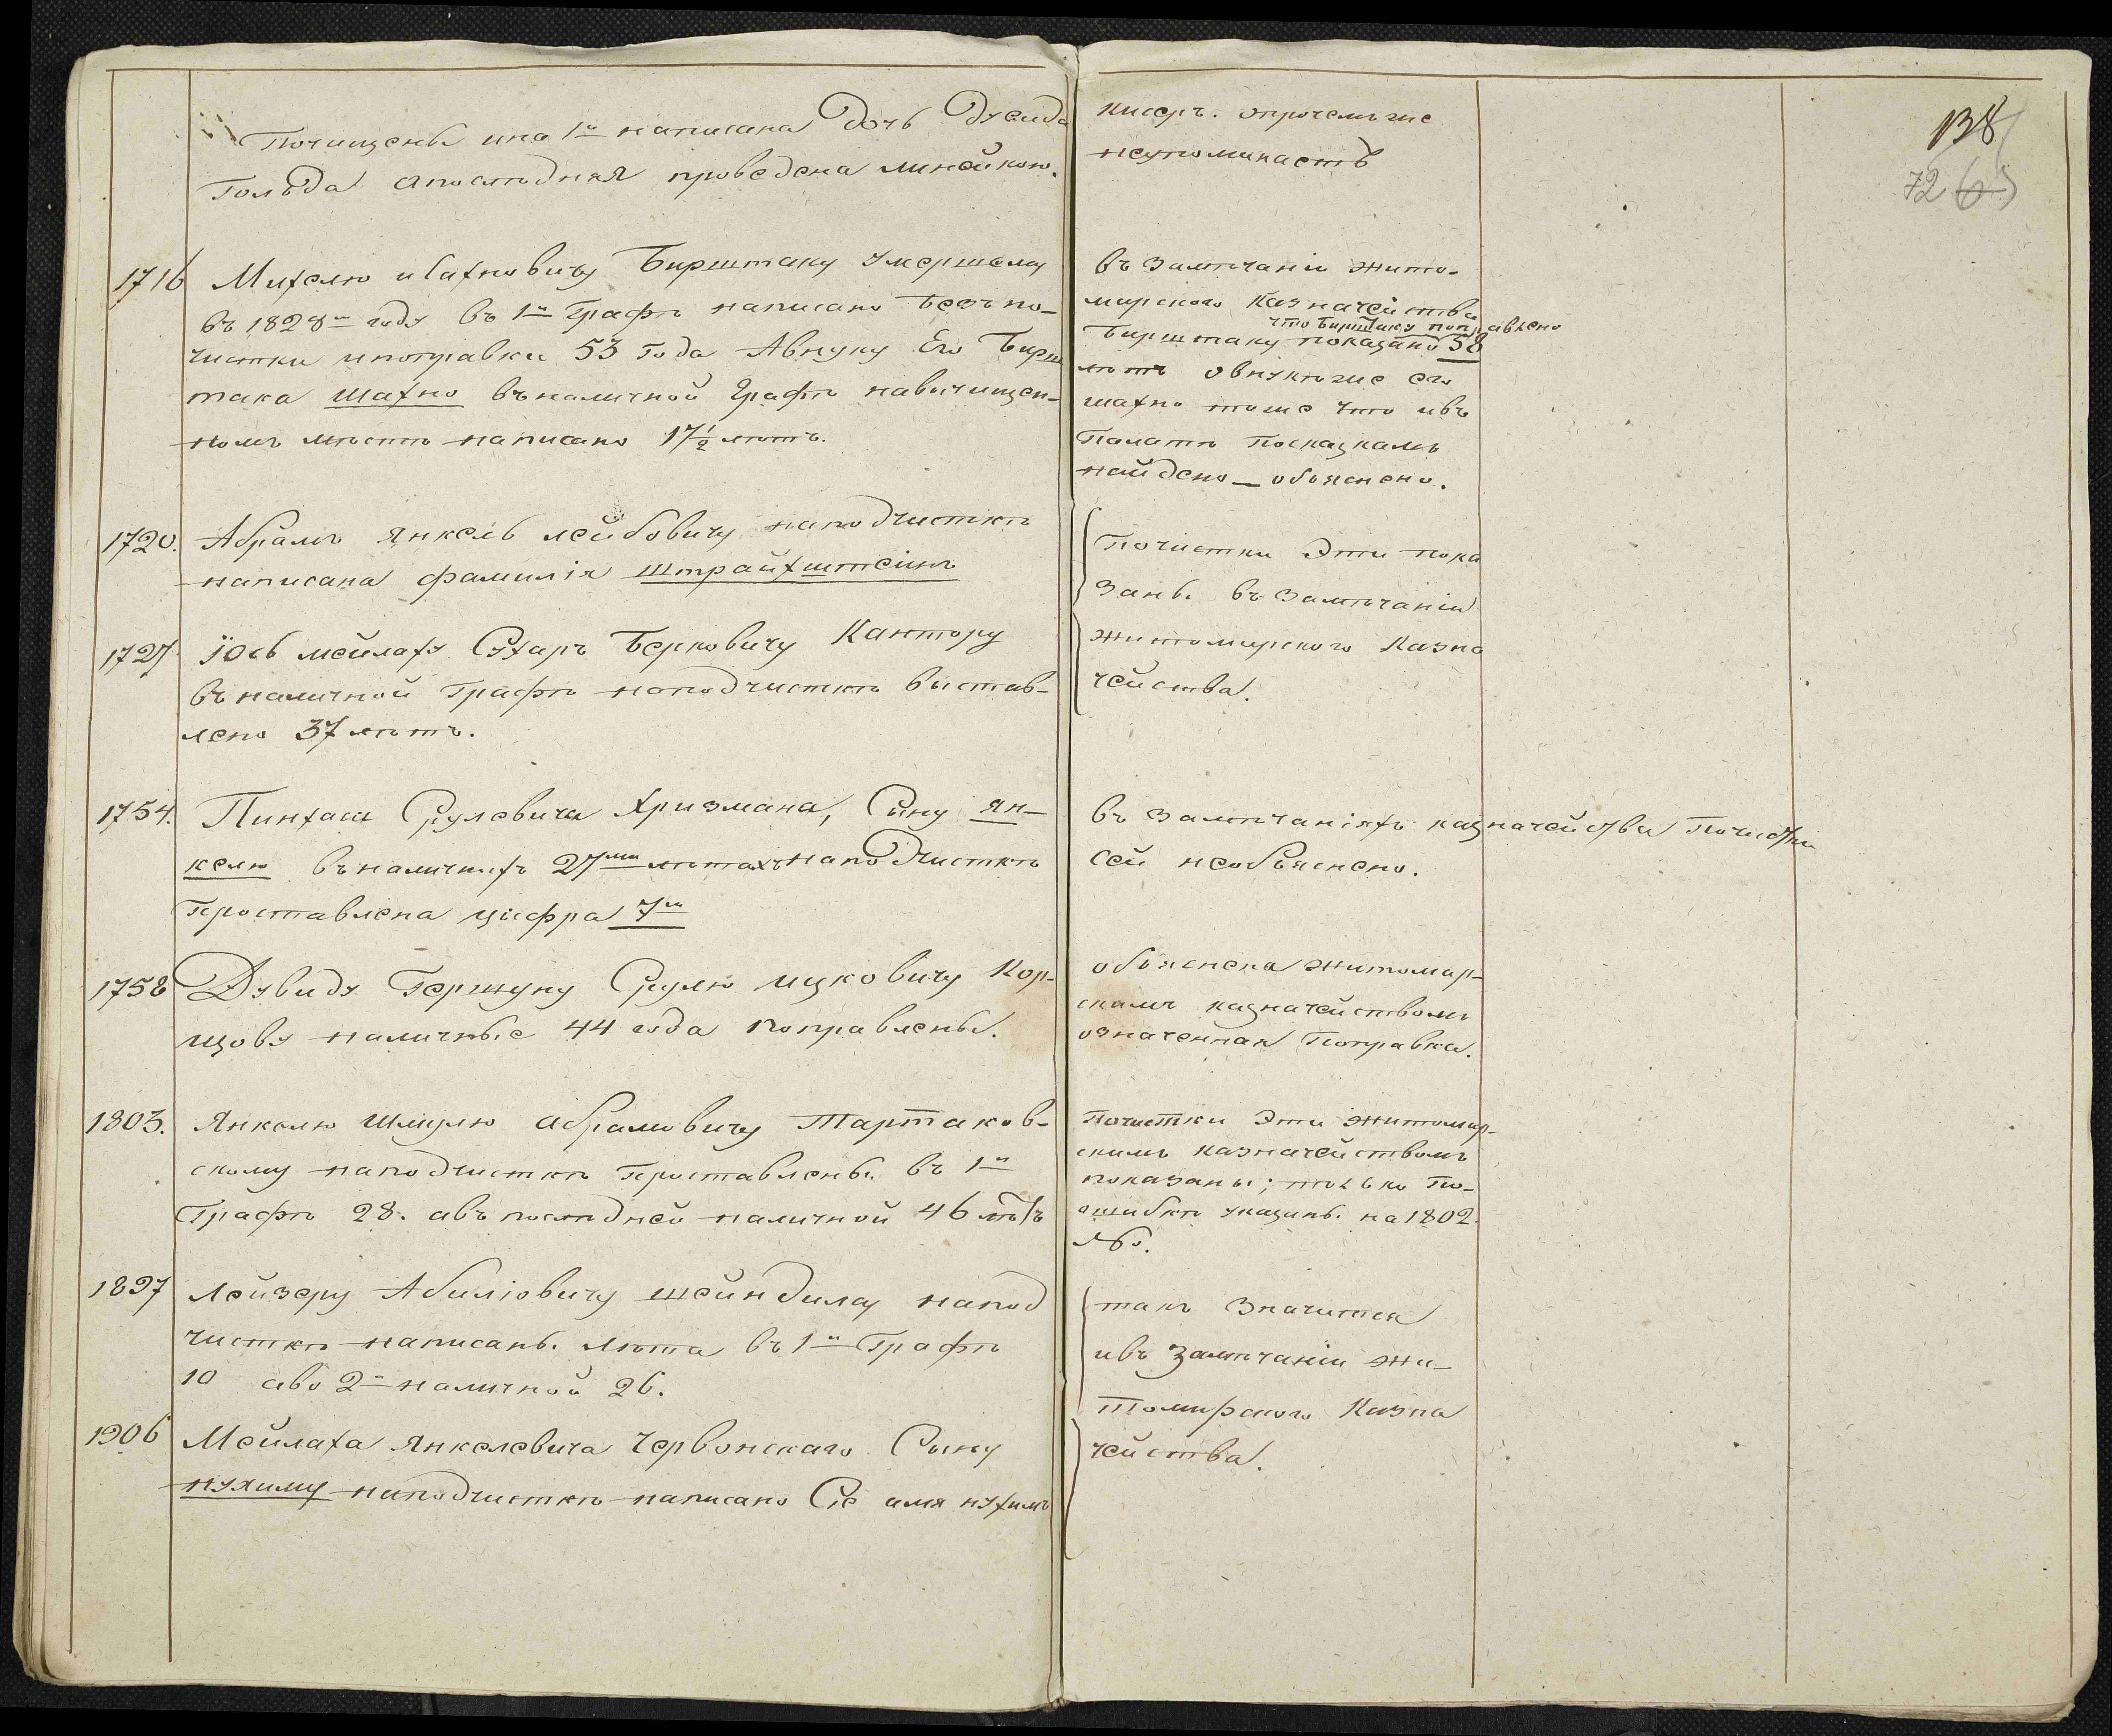 Почищены и на 1й написана Дочь Двейда
Гольда а последняя проведена линейкою.
1716 Михелю Шахновичу Бирштаку Умершему
въ 1828м году въ 1й Графѣ написано безъ по-
чистки и поправки 53 Года а внуку Его Бирш
така Шахно въ наличной Графѣ на вычищен-
номъ мѣстѣ написано 17½ лѣтъ.
1720. Абрамъ Янкель Лейбовичу на подчисткѣ
написана фамилія Штрайхштейнъ
1727 Іось Мейлаху Сухарь Берковичу Кантору
въ наличной Графѣ на подчисткѣ выстав-
лено 37 лѣтъ.
1754. Пинхаса Сруловича Хризмана, Сыну Ян-
келю въ наличныхъ 27ми лѣтахъ на подчисткѣ
проставлена цифра 7м
1758 Дувиду Гершуну Срулю Ицковичу Кор-
щову наличные 44 года поправлены.
1803. Янкелю Шмулю Абрамовичу Тартаков-
скому на подчисткѣ проставлены въ 1й
Графѣ 28. а въ последней наличной 46 лѣтъ
1897 Лейзеру Абиліовичу Шейндилу на под
чисткѣ написаны лѣта въ 1й Графѣ
10 а во 2й наличной 26.
1906 Мейлаха Янкелевича Червонскаго Сыну
Нухиму на подчисткѣ написано Сіе имя Нухимъ
о прочемъ же
неупоминаетъ
въ Замѣчаніи Жито-
мирского Казначейства
что Бирштаку поправлено
Бирштаку показано 58
лѣтъ о внукѣ же его
Шахно тоже что и въ
Палатѣ по сказкамъ
найдено – объяснено.
Почистки Эти пока
заны въ Замѣчаніи
Житомирского Казна
чейства.
въ Замѣчаніяхъ казначейства почистки
сей необъяснено.
объяснена Житомир-
скимъ казначействомъ
означенная поправка.
Почистки Эти Житомир-
скимъ казначействомъ
показаны; только по-
ошибкѣ указаны на 1802
№.
такъ Значится
и въ Замѣчаніи Жи-
томирского Казна
чейства.
138
72